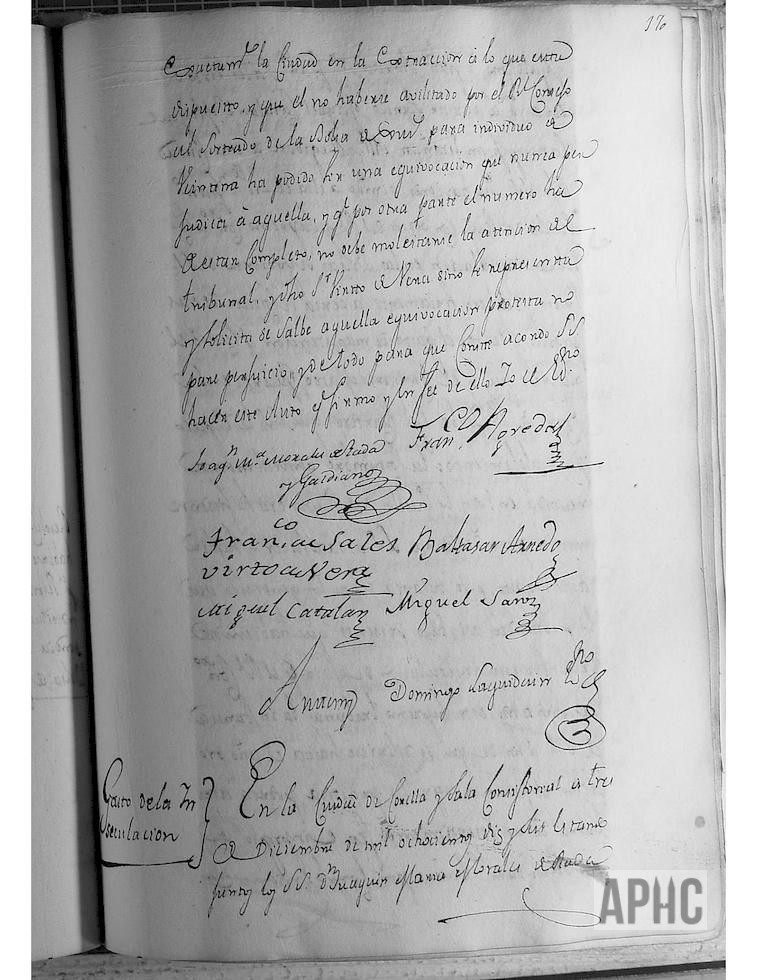 170
la Ciudad en la Extraccion à lo que esta
dispuesto, y que el no haberse avilitado por el Rl. Consejo
al Sorteado de la Bolsa de para individuo de
Veintena ha podido ser una equivocacion que nunca per
judica à aquella, y qe. por otra parte el numero ha
de estar Completo, no debe molestarse la atencion del
tribunal, y dho Sr. Virto de Vera sino se representa
y solicita se salbe aquella equivocacion protesta no
pare perjuicio, y de todo para que Conste acordo SS.
hacer este Auto qe. firmo y en fee de ello Yo el Esno.
Joaqn. Ma. Morales de Rada Franco. Agreda
y Gaidiano
Franco. de Sales Baltasar Arnedo
virto de Vera
Miguel Catalan Miguel Sanz
Antemi Domingo Esno.
Gasto de la In
seculacion
En la Ciudad de Corella y Sala Consistorial a tres
de Diciembre de mil ochocientos diez y seis estando
juntos los SS. Dn. Juaquin Maria Morales de Rada
APHC